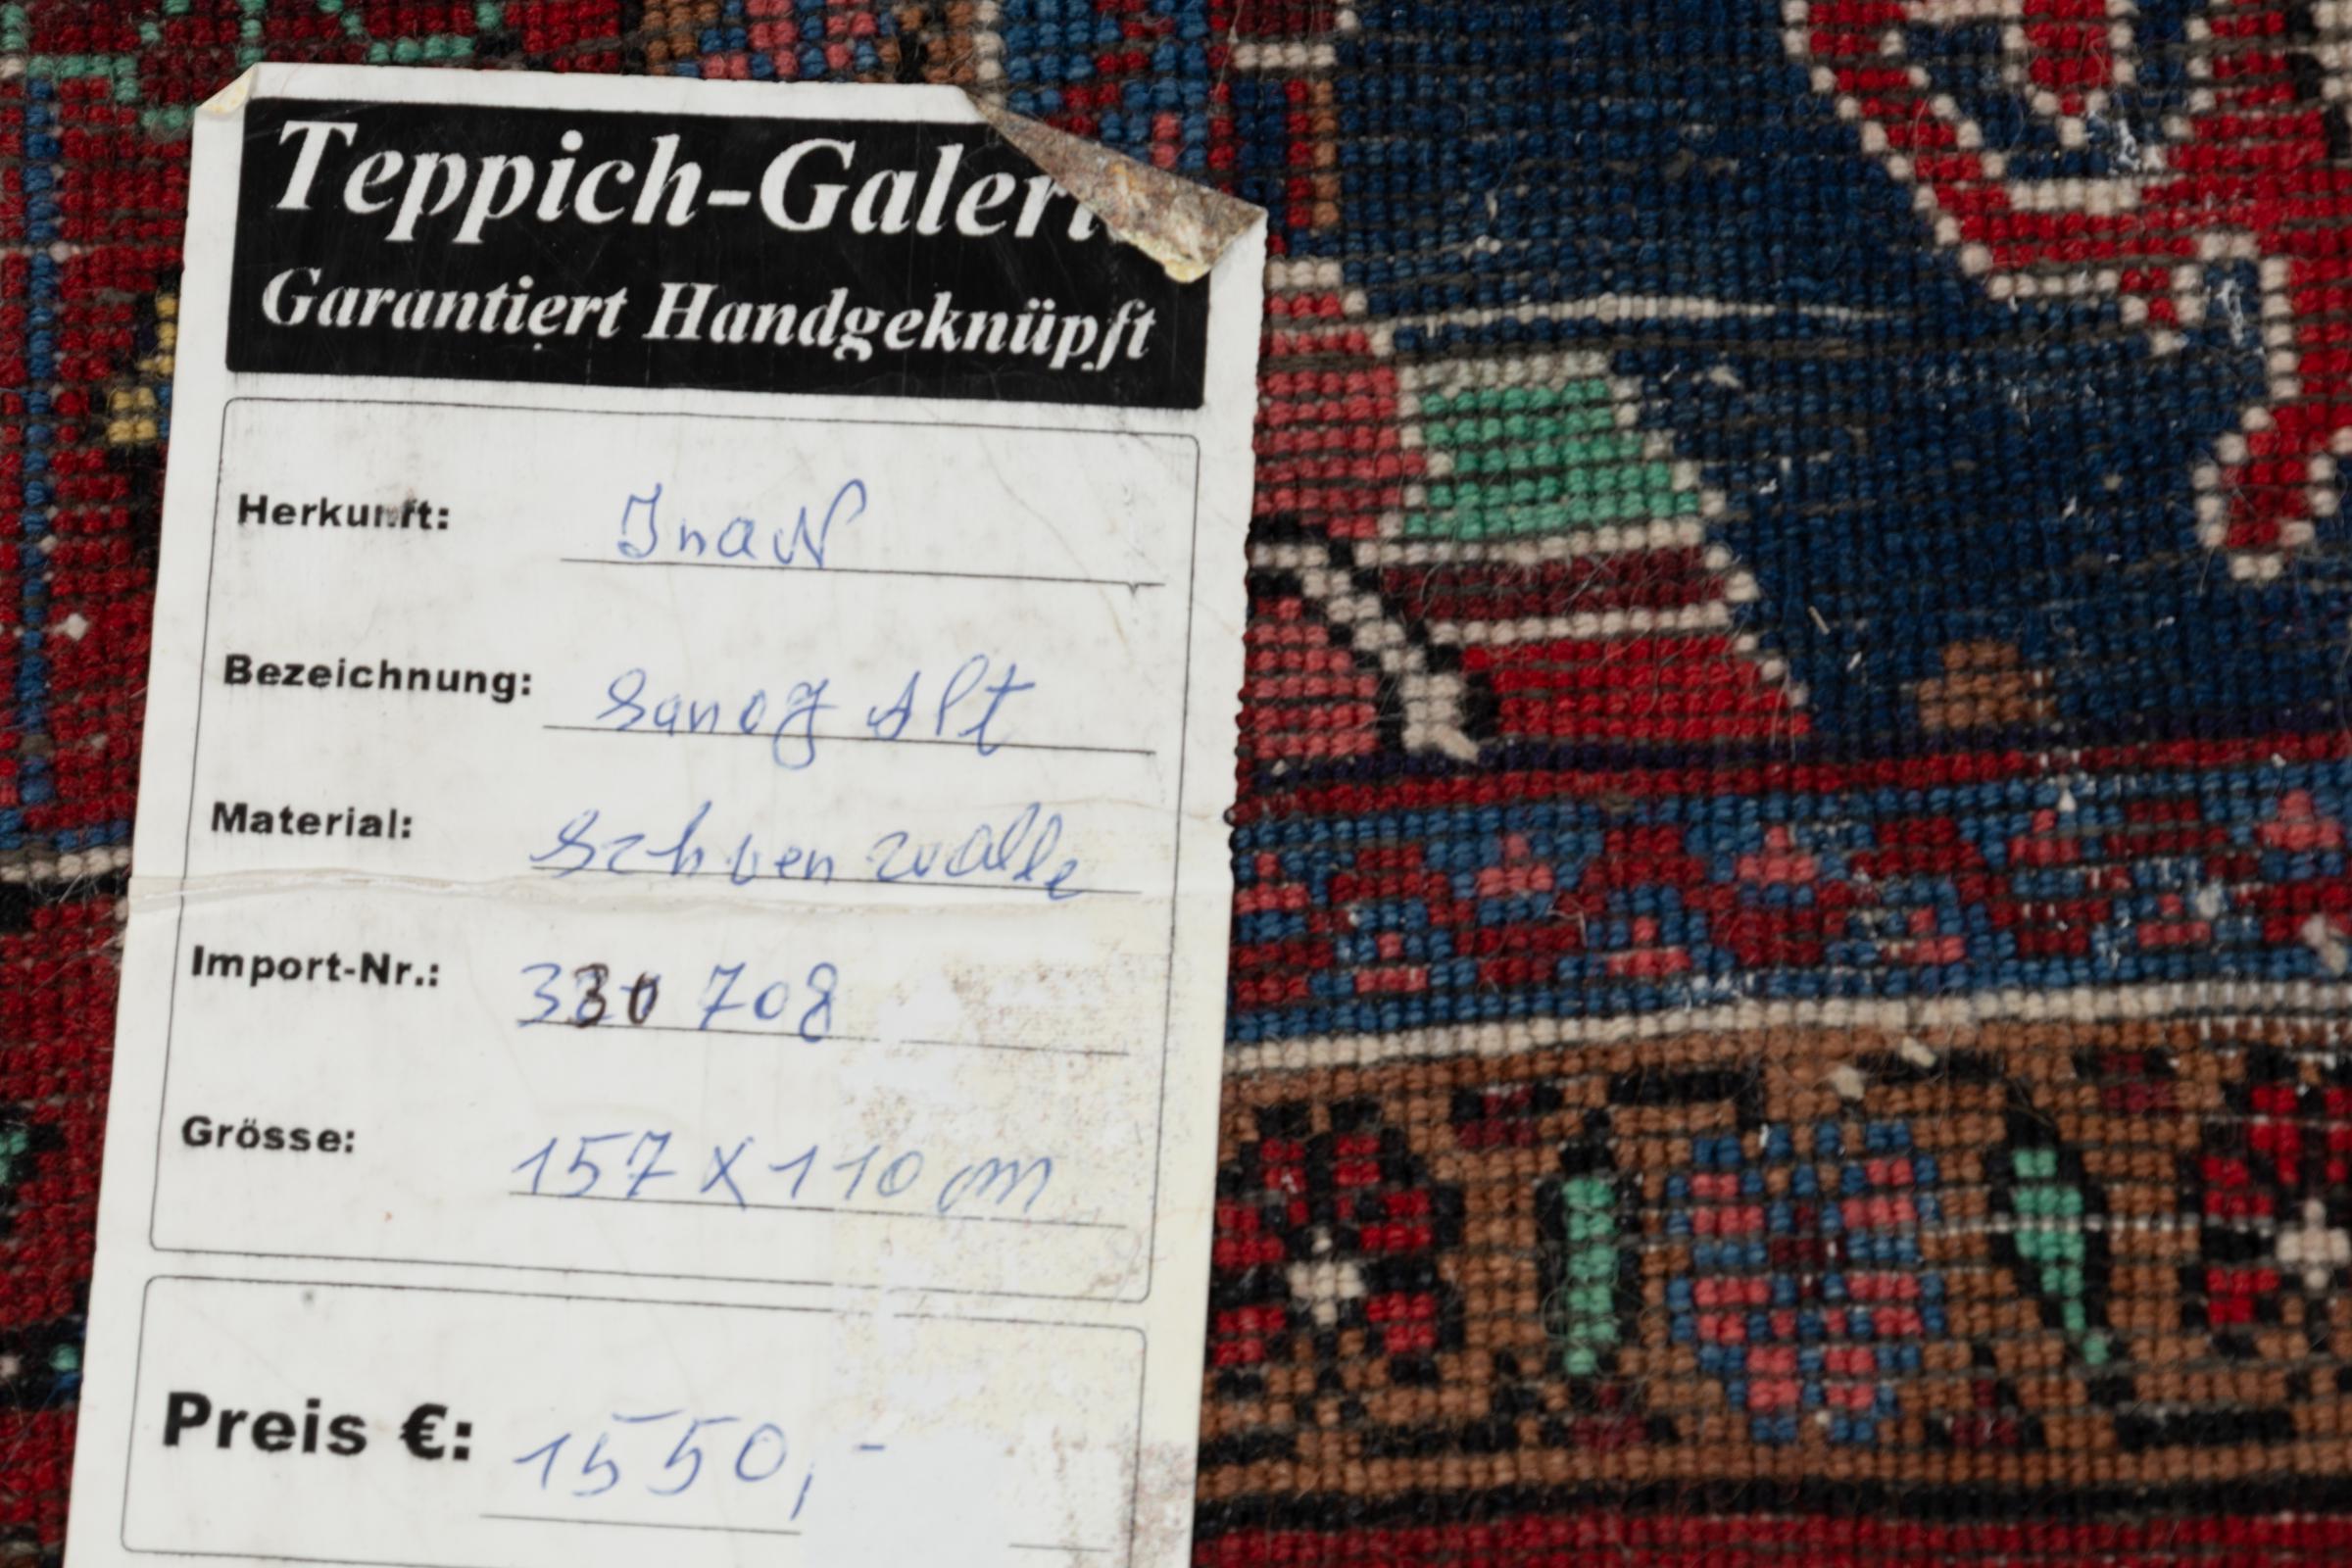 Teppich-Galeri
Garantiert Handgeknüpft
Herkunft: Iran
Bezeichnung: Alt
Material: wolle
Import-Nr.: 330 708
Grösse: 157 X 110 cm
Preis €: 1550,-